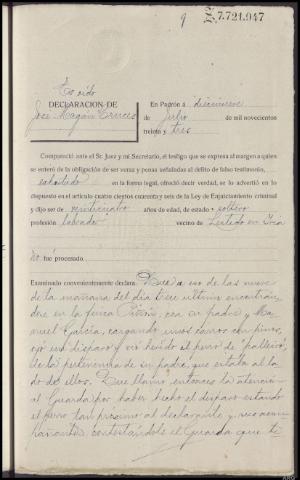 9
7.721.947
Es oido
DECLARACION DE
José Magán Truces
En Padrón a diecinueve
de Julio de mil novecientos
treinta y tres
Compareció ante el Sr. Juez y mi Secretario, el testigo que se expresa al margen a quien
se enteró de la obligación de ser veraz y penas señaladas al delito de falso testimonio,
exhortado en la forma legal, ofreció decir verdad, se lo advirtió en lo
dispuesto en el artículo cuatro cientos cuarenta y seis de la Ley de Enjuiciamiento criminal
y dijo ser de veinticuatro años de edad, de estado soltero
profesión labrador vecino de Lestedo en
No fué procesado
Examinado convenientemente declara: Que a eso de las nueve
de la mañana del día trece último encontrán-
dose en la finca con su padre y Ma-
nuel García, cargando unos carros con pinos,
oyó un disparo y vió herido el perro de "palleiro"
de la pertenencia de su padre, que estaba al la-
do del ellos. Que llamó entonces la atención
al Guarda por haber hecho el disparo estando
el perro tan próximo al declarante y sus acom-
pañantes, contestándole el Guarda que te